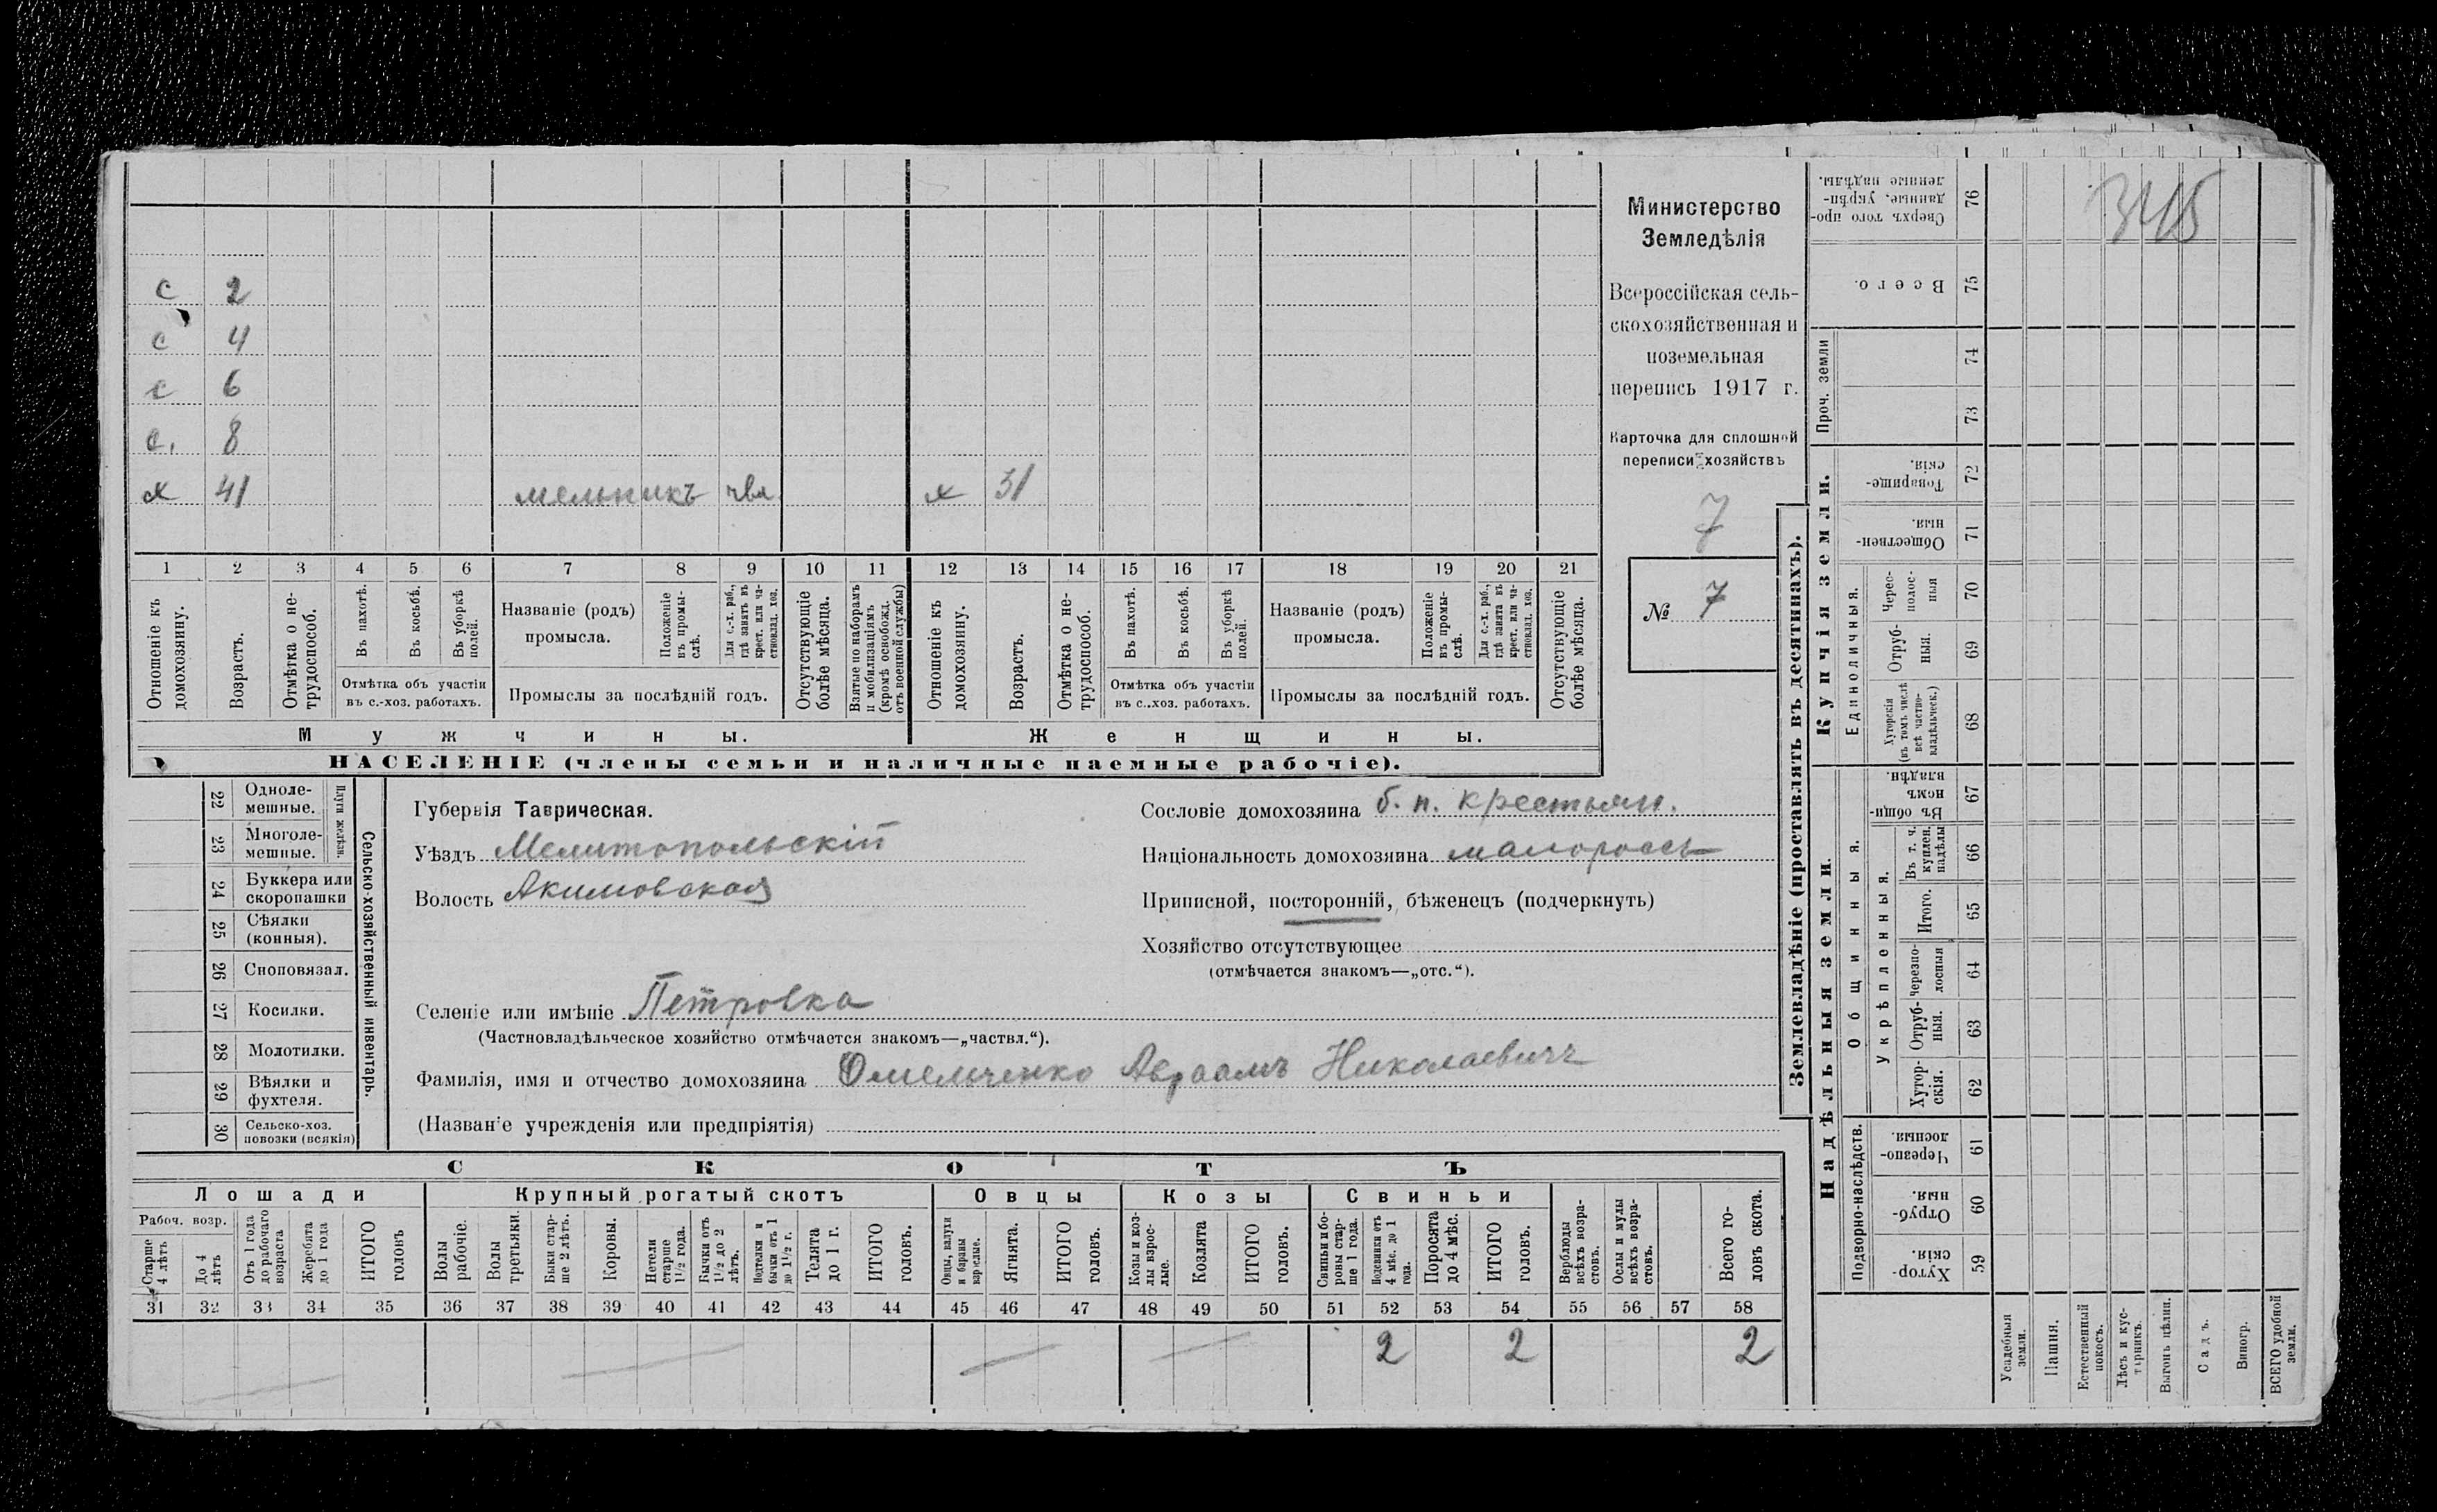 с 2
с 4
с 6
с. 8
х 41 мельникъ х 31
1 2 3 4 5 6 7 8 9 10 11 12 13 14 15 16 17 18 19 20 21
Отношеніе къ домохозяину.
Возрастъ.
Отмѣтка о не-трудоспособ.
Въ пахотѣ.
Въ косьбѣ.
Въ уборкѣ полей.
Отмѣтка объ участіи
въ с.-хоз. работахъ.
Названіе (родъ)
промысла.
Положеніе въ промы-слѣ.
Для с.-х. раб., гдѣ занятъ въ крест. или ча-стновлад. хоз.
Промыслы за послѣдній годъ.
Отсутствующіе болѣе мѣсяца.
Взятые по наборамъ и мобилизаціямъ (кромѣ освобожд. отъ военной службы)
Отношеніе къ домохозяину.
Возрастъ.
Отмѣтка о не-трудоспособ.
Въ пахотѣ.
Въ косьбѣ.
Въ уборкѣ полей.
Отмѣтка объ участіи
въ с..хоз. работахъ.
Названіе (родъ)
промысла.
Положеніе въ промы-слѣ.
Для с.-х. раб., гдѣ занята въ крест. или ча-стновлад. хоз.
Промыслы за послѣдній годъ.
Отсутствующіе болѣе мѣсяца.
Мужчины. Женщины.
НАСЕЛЕНІЕ (члены семьи и наличные наемные рабочіе).
Министерство
Земледѣлія
Всероссійская сель-
скохозяйственная и
поземельная
перепись 1917 г.
Карточка для сплошной
переписи хозяйствъ
7
№ 7
22 Одноле-мешные.
23 Многоле-мешные.
Плуги желѣзн.
24 Буккера или скоропашки
25 Сѣялки (конныя).
26 Сноповязал.
27 Косилки.
28 Молотилки.
29 Вѣялки и фухтеля.
30 Сельско-хоз. повозки (всякія)
Сельско-хозяйственный инвентарь.
Губернія Таврическая.
Уѣздъ Мелитопольскій
Волость Акимовская
Селеніе или имѣніе Петровка
(Частновладѣльческое хозяйство отмѣчается знакомъ—„частвл.“).
Фамилія, имя и отчество домохозяина Омельченко Авраамъ Николаевичъ
(Названіе учрежденія или предпріятія)
Сословіе домохозяина б. п. крестьян.
Національность домохозяина малороссъ
Приписной, посторонній, бѣженецъ (подчеркнуть)
Хозяйство отсутствующее
(отмѣчается знакомъ—„отс.“).
СКОТЪ
Лошади Крупный рогатый скотъ Овцы Козы Свиньи
Рабоч. возр.
Старше 4 лѣтъ
До 4 лѣтъ
Отъ 1 года до рабочаго возраста
Жеребята до 1 года
ИТОГО головъ
Волы рабочіе.
Волы третьяки.
Быки стар-ше 2 лѣтъ.
Коровы.
Нетели старше 1½ года.
Бычки отъ 1½ до 2 лѣтъ.
Подтелки и бычки отъ 1 до 1½ г.
Телята до 1 г.
ИТОГО головъ.
Овцы, валухи и бараны взрослые.
Ягнята.
ИТОГО головъ.
Козы и коз-лы взрос-лые.
Козлята
ИТОГО головъ.
Свиньи и бо-ровы стар-ше 1 года.
Подсвинки отъ 4 мѣс. до 1 года.
Поросята до 4 мѣс.
ИТОГО головъ.
Верблюды всѣхъ возра-стовъ.
Ослы и мулы всѣхъ возра-стовъ.
Всего го-ловъ скота.
31 32 33 34 35 36 37 38 39 40 41 42 43 44 45 46 47 48 49 50 51 52 53 54 55 56 57 58
2 2 2
Землевладѣніе (проставлять въ десятинахъ).
Надѣльныя земли.
Купчія земли.
Проч. земли
Подворно-наслѣдств.
Общинныя.
Укрѣпленныя.
Единоличныя.
59 Хутор-скія.
60 Отруб-ныя.
61 Черезпо-лосныя.
62 Хутор-скія.
63 Отруб-ныя.
64 Черезпо-лосныя
65 Итого.
66 Въ т. ч. куплен. надѣлы
67 Въ общи-номъ владѣн.
68 Хуторскія (въ томъ числѣ всѣ частно-владѣльческ.)
69 Отруб-ныя.
70 Черес-полос-ныя
71 Обществен-ныя.
72 Товарище-скія.
73
74
75 Всего.
76 Сверхъ того про-данные, укрѣп-ленные надѣлы.
345
Усадебныя земли.
Пашня.
Естественный покосъ.
Лѣсъ и кус-тарникъ.
Выгонъ цѣлин.
Садъ.
Виногр.
ВСЕГО удобной земли.